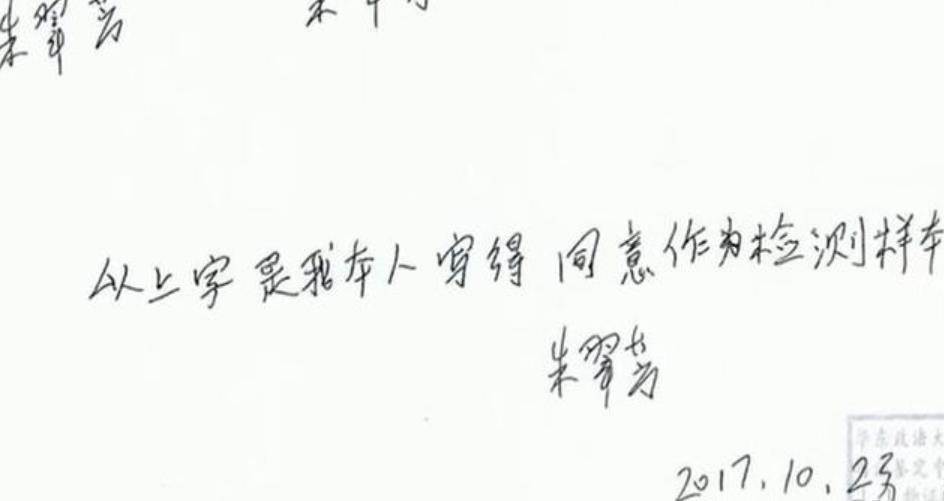 朱翠芳
以上字是我本人写得 同意作为检测样本
朱翠芳
2017.10.23
华东政法大